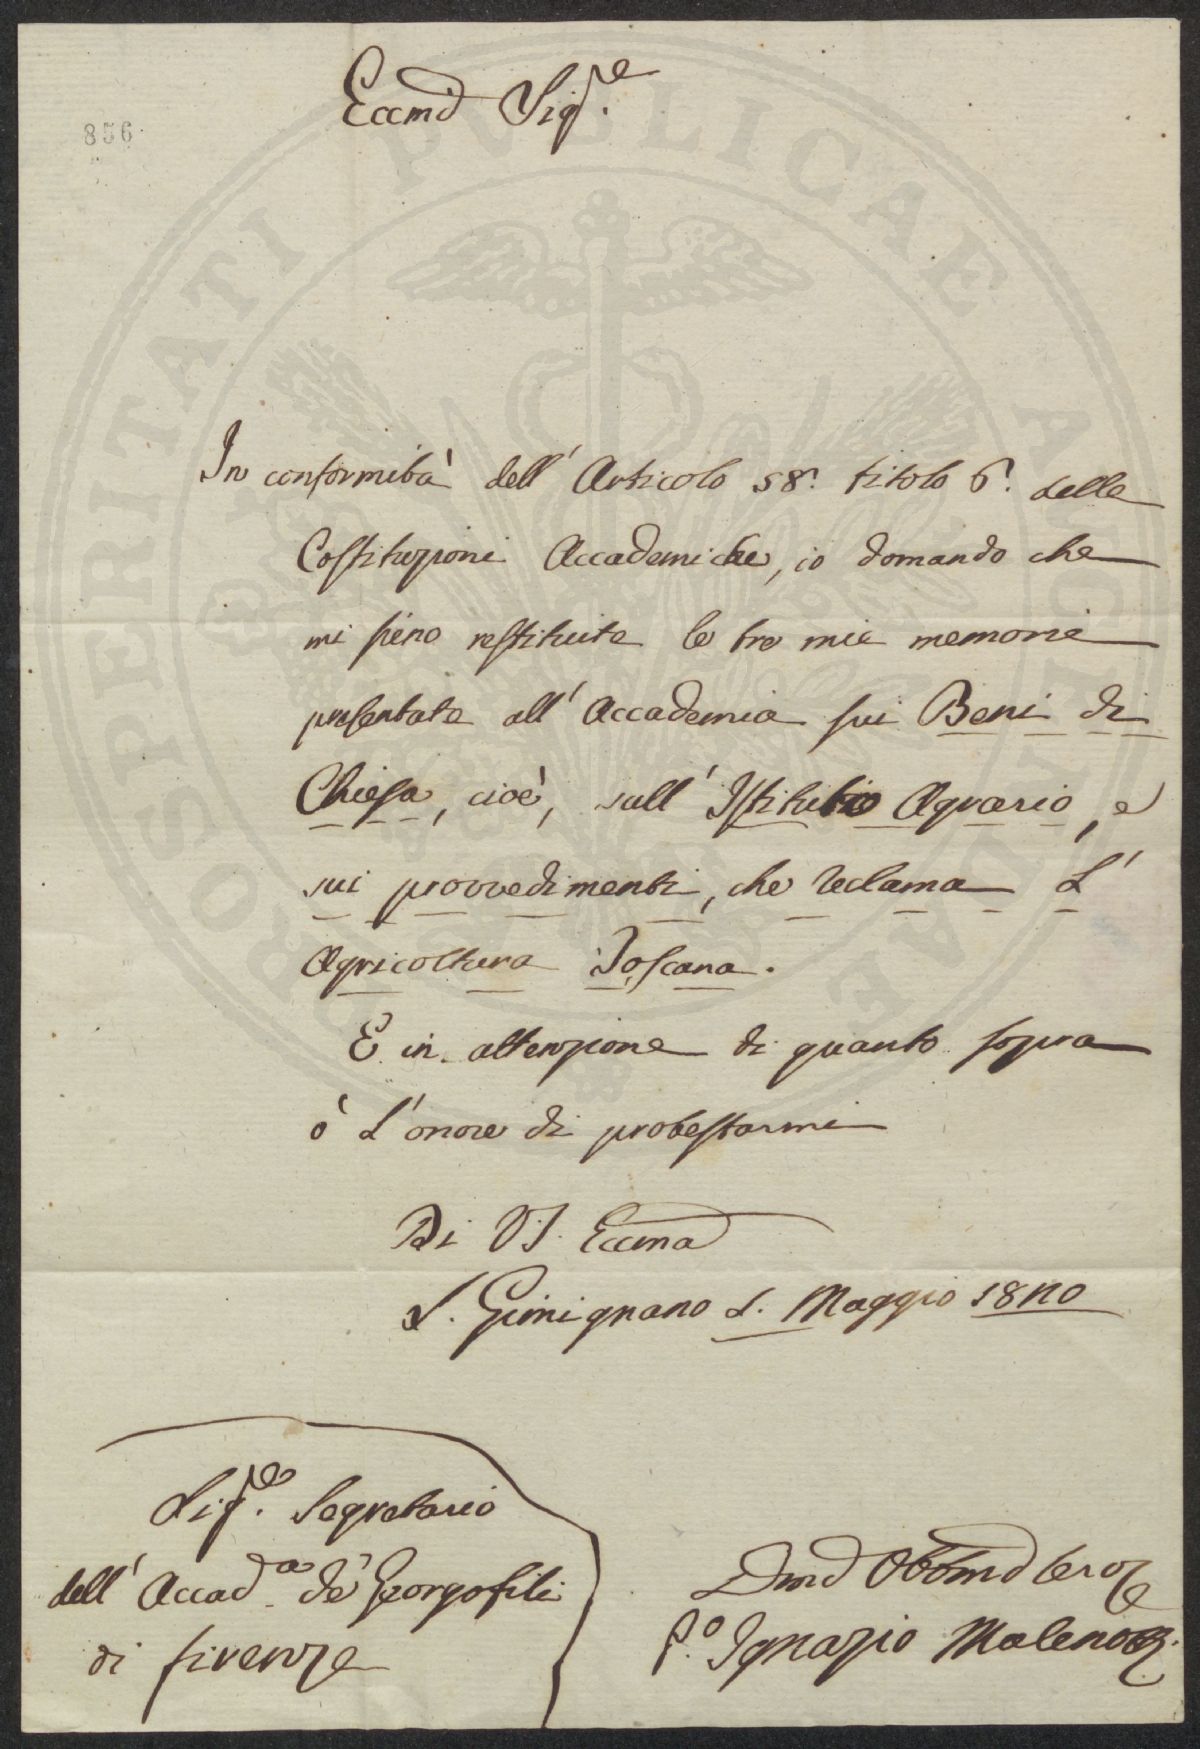 Eccmo Sigre.
856
In conformità dell' Articolo 58. titolo 6. delle
Costituzioni Accademiche, io domando che
mi sieno restituite le tre mie memorie
presentate all' Accademia sui Beni di
Chiesa, cioè, sull' Istituto Agrario, e
sui provvedimenti, che reclama L'
Agricoltura Toscana.
E in attenzione di quanto sopra
ò L'onore di protestarmi
Di VS. Eccma
S. Gimignano Maggio
Sigre. Segretario
dell' Accada. de' Georgofili
di firenze
Dmo Obbmo Servre
Po. Ignazio
PROSPERITATI PVBLICAE AVGENDAE